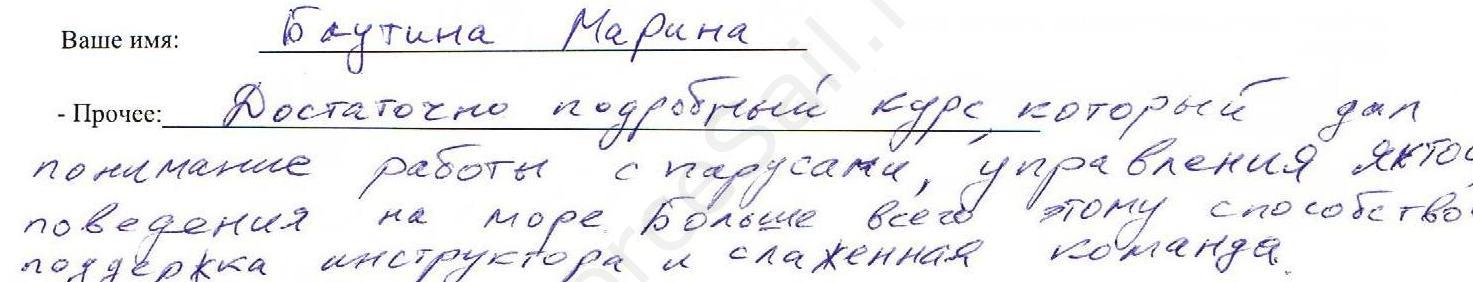 Ваше имя: Блутина Марина
- Прочее: Достаточно подробный курс, который дал
понимание работы с парусами, управления яхто
поведения на море. Больше всего этому способство
поддержка инструктора и слаженная команда.